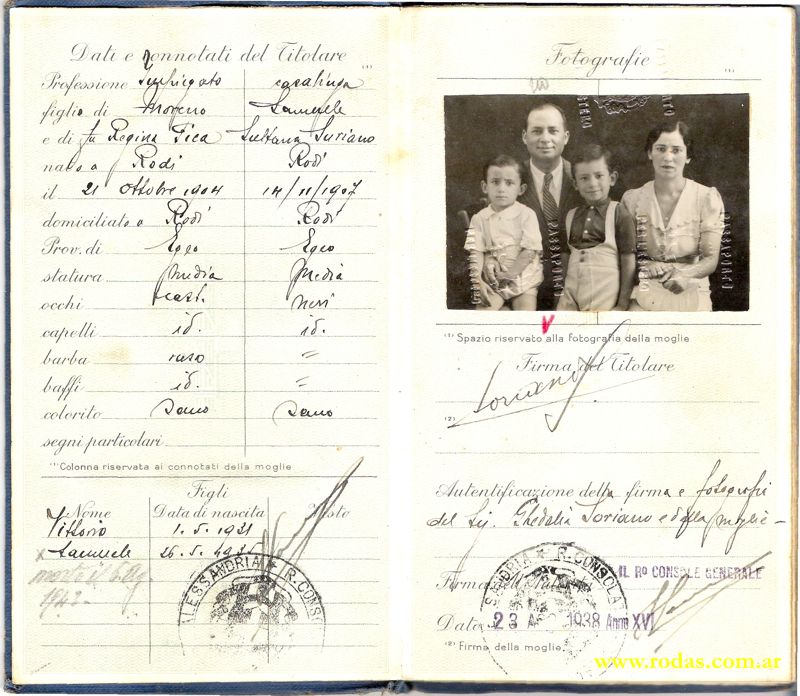 Dati e Connotati del Titolare
(1)
Professione Impiegato casalinga
figlio di Moreno Samuele
e di fu Regina Pica Sultana Suriano
nato a Rodi Rodi
il 21 Ottobre 1904 14/11/1907
domiciliato a Rodi Rodi
Prov. di Egeo Egeo
statura Media Media
occhi cast. neri
capelli id. id.
barba raso =
baffi id. =
colorito sano sano
segni particolari
(1) Colonna riservata ai connotati della moglie
Figli
Nome Data di nascita Visto
Vittorio 1.5.1931
x Samuele 26.5.193
morto il 6
1942
ALESSANDRIA ★ R. CONSOL
Fotografie
(1)
PASSAPORTO
(1) Spazio riservato alla fotografia della moglie
Firma del Titolare
Soriano
(2)
Autentificazione della firma e fotografie
del Sig. Ghedalia Soriano e della moglie -
Firma dell'
IL Rº CONSOLE GENERALE
SANDRIA ★ R. CONSOLA
Data 23 1938 Anno XVI
(2) Firma della moglie
www.rodas.com.ar